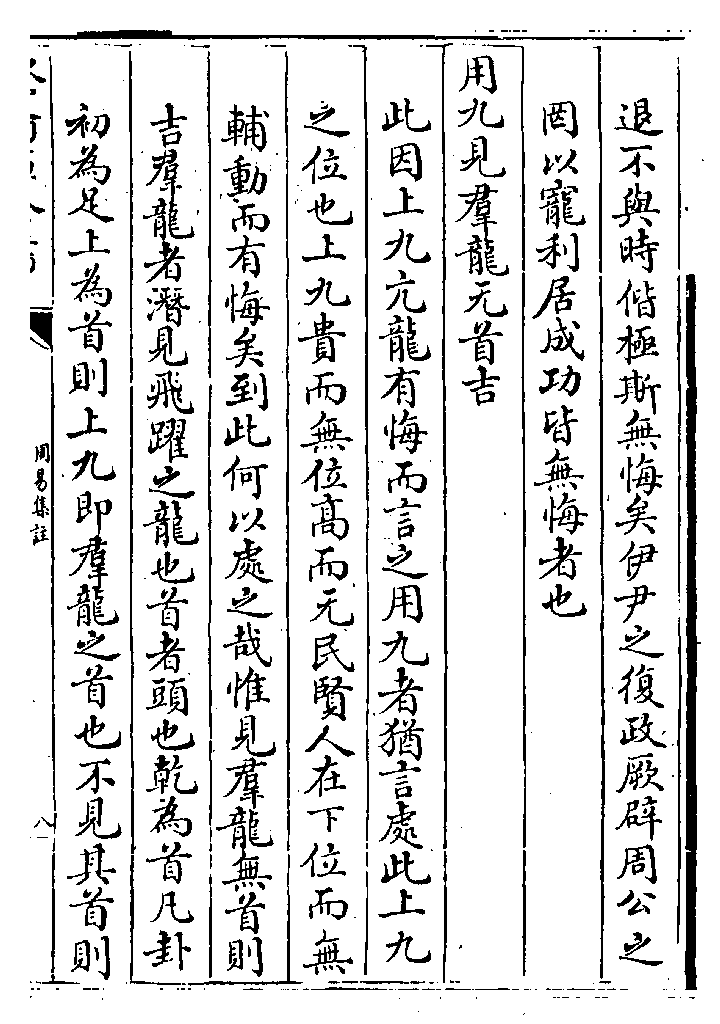 退不與時偕極斯無悔矣伊尹之復政厥辟周公之
罔以寵利居成功皆無悔者也
用九見羣龍无首吉
此因上九亢龍有悔而言之用九者猶言處此上九
之位也上九貴而無位髙而无民賢人在下位而無
輔動而有悔矣到此何以處之哉惟見羣龍無首則
吉羣龍者潛見飛躍之龍也首者頭也乾為首凡卦
初為足上為首則上九即羣龍之首也不見其首則
周易集註
八